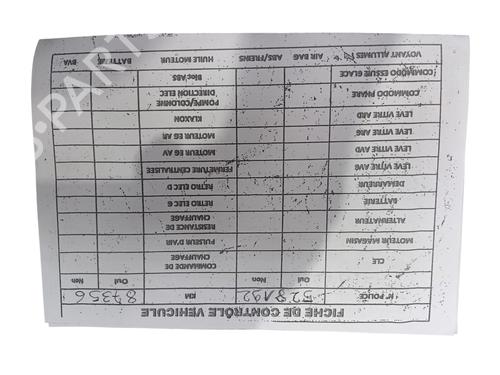 FICHE DE CONTRÔLE VEHICULE
N° POLICE 528192 KM 87356
Oui Non Oui Non
CLE COMMANDE DE CHAUFFAGE
MOTEUR MAGASIN PULSEUR D'AIR
ALTERNATEUR RESISTANCE DE CHAUFFAGE
BATTERIE RETRO ELEC G
DEMARREUR RETRO ELEC D
LEVE VITRE AVG FERMETURE CENTRALISEE
LEVE VITRE AVD MOTEUR EG AV
LEVE VITRE ARG MOTEUR EG AR
LEVE VITRE ARD KLAXON
COMMODO PHARE POMPE/COLONNE DIRECTION ELEC
COMMODO ESSUIE GLACE Bloc ABS
VOYANT ALLUMES AIR BAG ABS/FREINS HUILE MOTEUR BATTERIE BVA